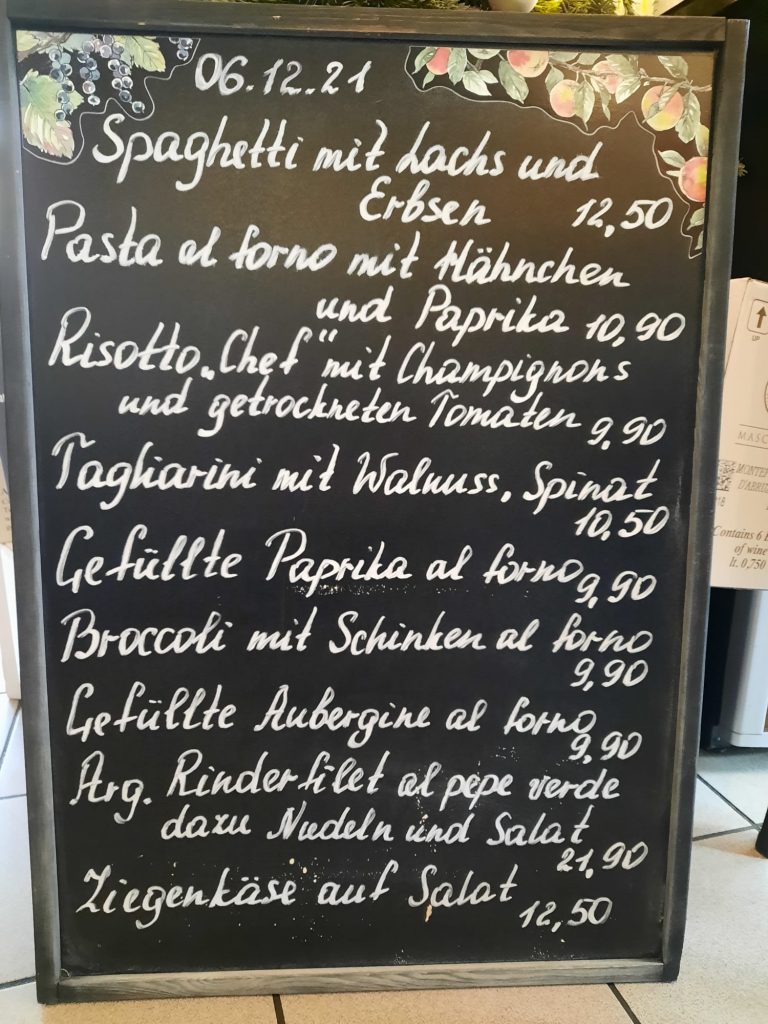 06.12.21
Spaghetti mit Lachs und
Erbsen 12,50
Pasta al forno mit Hähnchen
und Paprika 10,90
Risotto „Chef“ mit Champignons
und getrockneten Tomaten 9,90
Tagliarini mit Walnuss, Spinat
10,50
Gefüllte Paprika al forno 9,90
Broccoli mit Schinken al forno
9,90
Gefüllte Aubergine al forno
9,90
Arg. Rinderfilet al pepe verde
dazu Nudeln und Salat
21,90
Ziegenkäse auf Salat
12,50
UP
MASC
MONTEP
D'ABRUZ
Contains 6
of wine
lt. 0,750